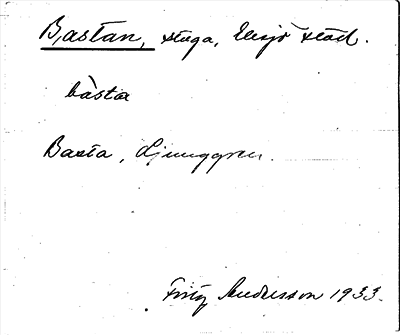 Bastan, stuga, Eksjö stad.
bàsta
Basta, Ljunggren.
Fritz Andersson 1933.